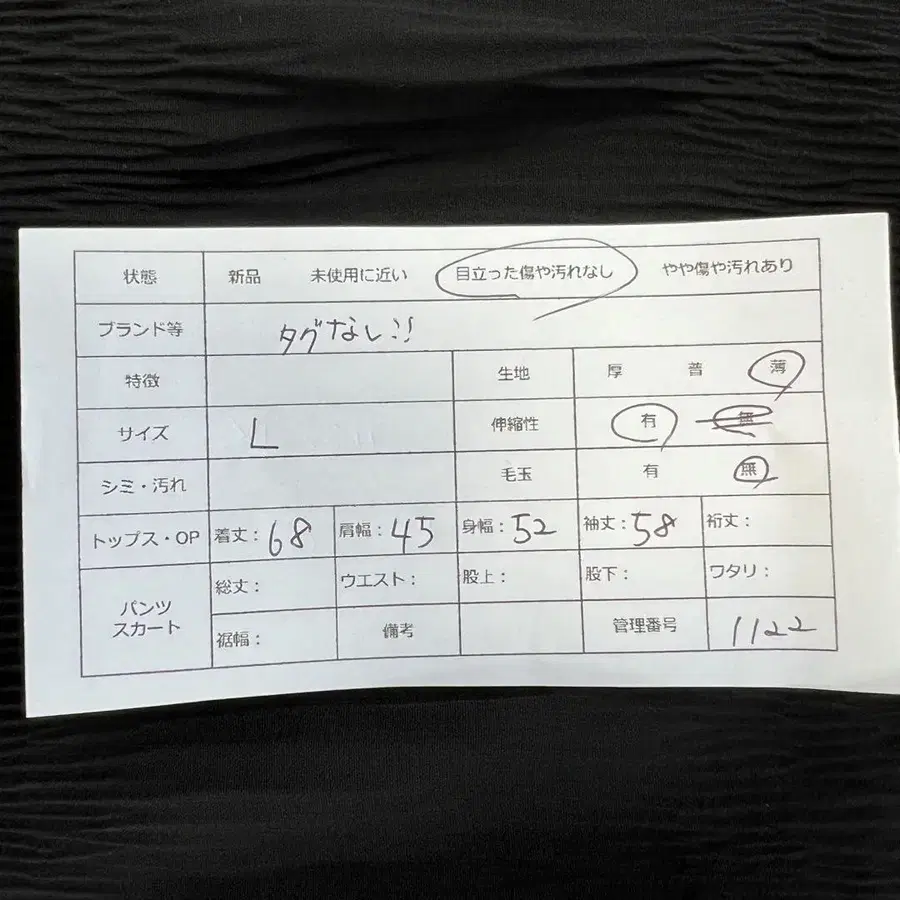 状態 新品 未使用に近い 目立った傷や汚れなし やや傷や汚れあり
ブランド等 タグなし!!
特徴 生地 厚 普 薄
サイズ L 伸縮性 有 無
シミ・汚れ 毛玉 有 無
トップス・OP 着丈：68 肩幅：45 身幅：52 袖丈：58 裄丈：
パンツ スカート 総丈： ウエスト： 股上： 股下： ワタリ：
裾幅： 備考 管理番号 1122